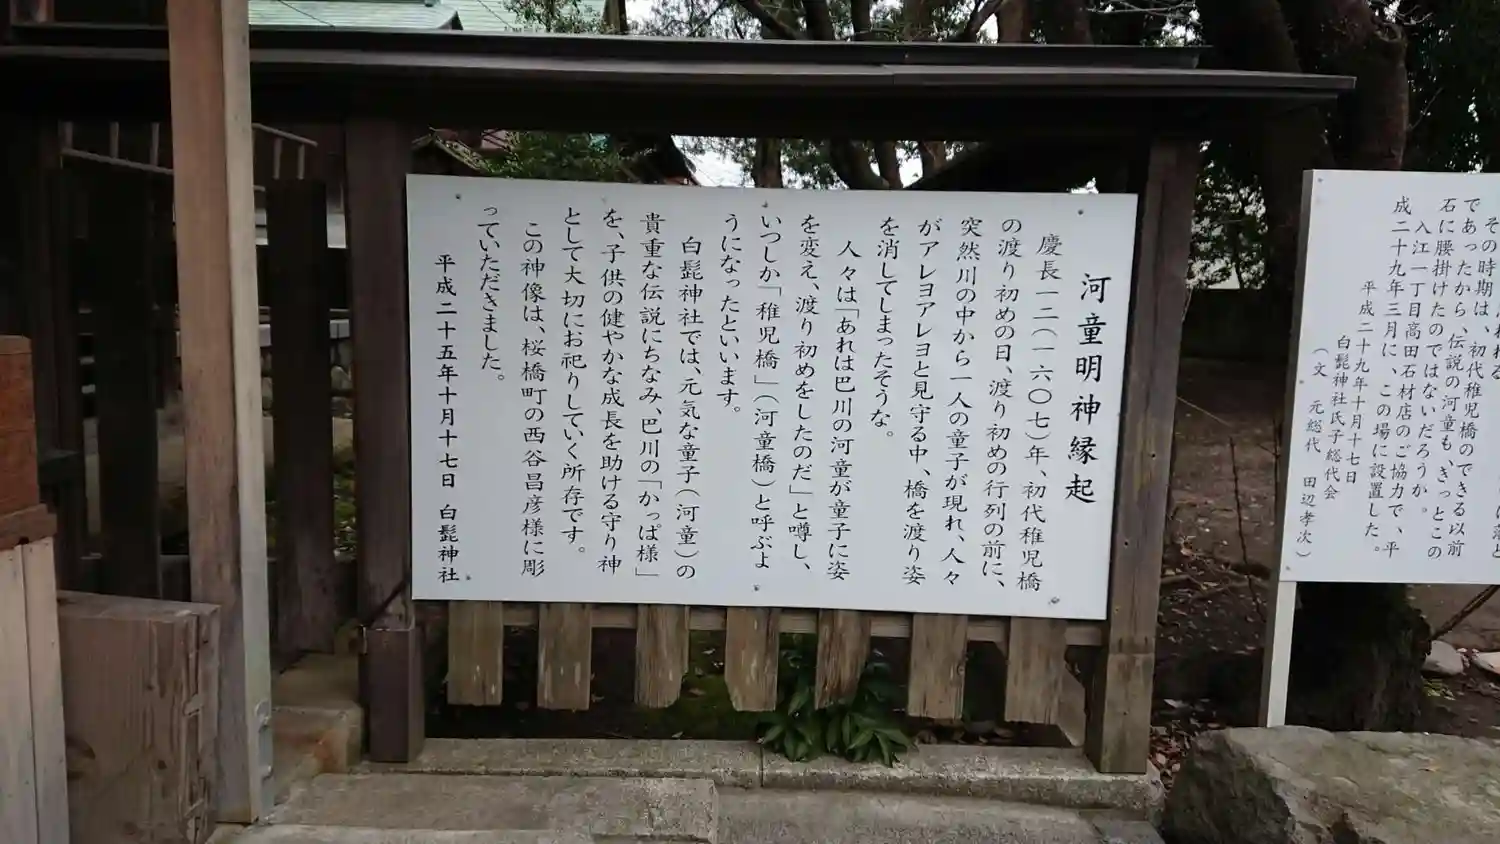 河童明神縁起
慶長一二(一六〇七)年、初代稚児橋
の渡り初めの日、渡り初めの行列の前に、
突然川の中から一人の童子が現れ、人々
がアレヨアレヨと見守る中、橋を渡り姿
を消してしまったそうな。
人々は「あれは巴川の河童が童子に姿
を変え、渡り初めをしたのだ」と噂し、
いつしか「稚児橋」(河童橋)と呼ぶよ
うになったといいます。
白髭神社では、元気な童子(河童)の
貴重な伝説にちなみ、巴川の「かっぱ様」
を、子供の健やかな成長を助ける守り神
として大切にお祀りしていく所存です。
この神像は、桜橋町の西谷昌彦様に彫
っていただきました。
平成二十五年十月十七日 白髭神社
その時期は、初代稚児橋のできる以前
であったから、伝説の河童も、ぎっとこの
石に腰掛けたのではないだろうか。
入江一丁目高田石材店のご協力で、平
成二十九年三月に、この場に設置した。
平成二十九年十月十七日
白髭神社氏子総代会
(文 元総代 田辺孝次)